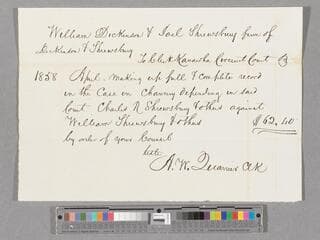 William Dickinson & Joel Shrewsbury firm of
Dickinson & Shrewsbury
To Clk Kanawha Circuit Court Dr
1858 April. making up full & complete record
in the Case in Chancery depending in said
Court Charles R. Shrewsbury & others against
William Shrewsbury & others $62.40
by order of your Counsel
teste
A. W. Quarrier Clk